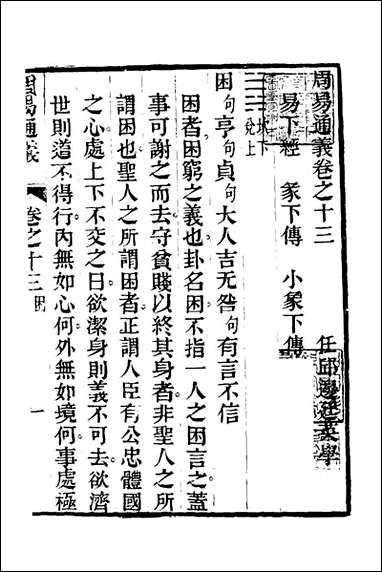 周易通義卷之十三
任邱邊廷英學
易下經　彖下傳　小象下傳
坎下
兌上
困句亨句貞句大人吉无咎句有言不信
困者困窮之義也卦名困不指一人之困言之蓋
事可謝之而去守貧賤以終其身者非聖人之所
謂困也聖人之所謂困者正謂人臣有公忠體國
之心處上下不交之日欲潔身則義不可去欲濟
世則道不得行內無如心何外無如境何事處極
周易通義
卷之十三
困
一